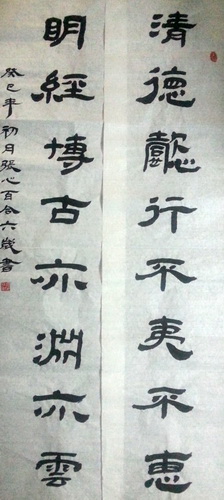 清德懿行平夷平惠
明經博古亦淵亦雲
癸巳年初月張心百合六歲書